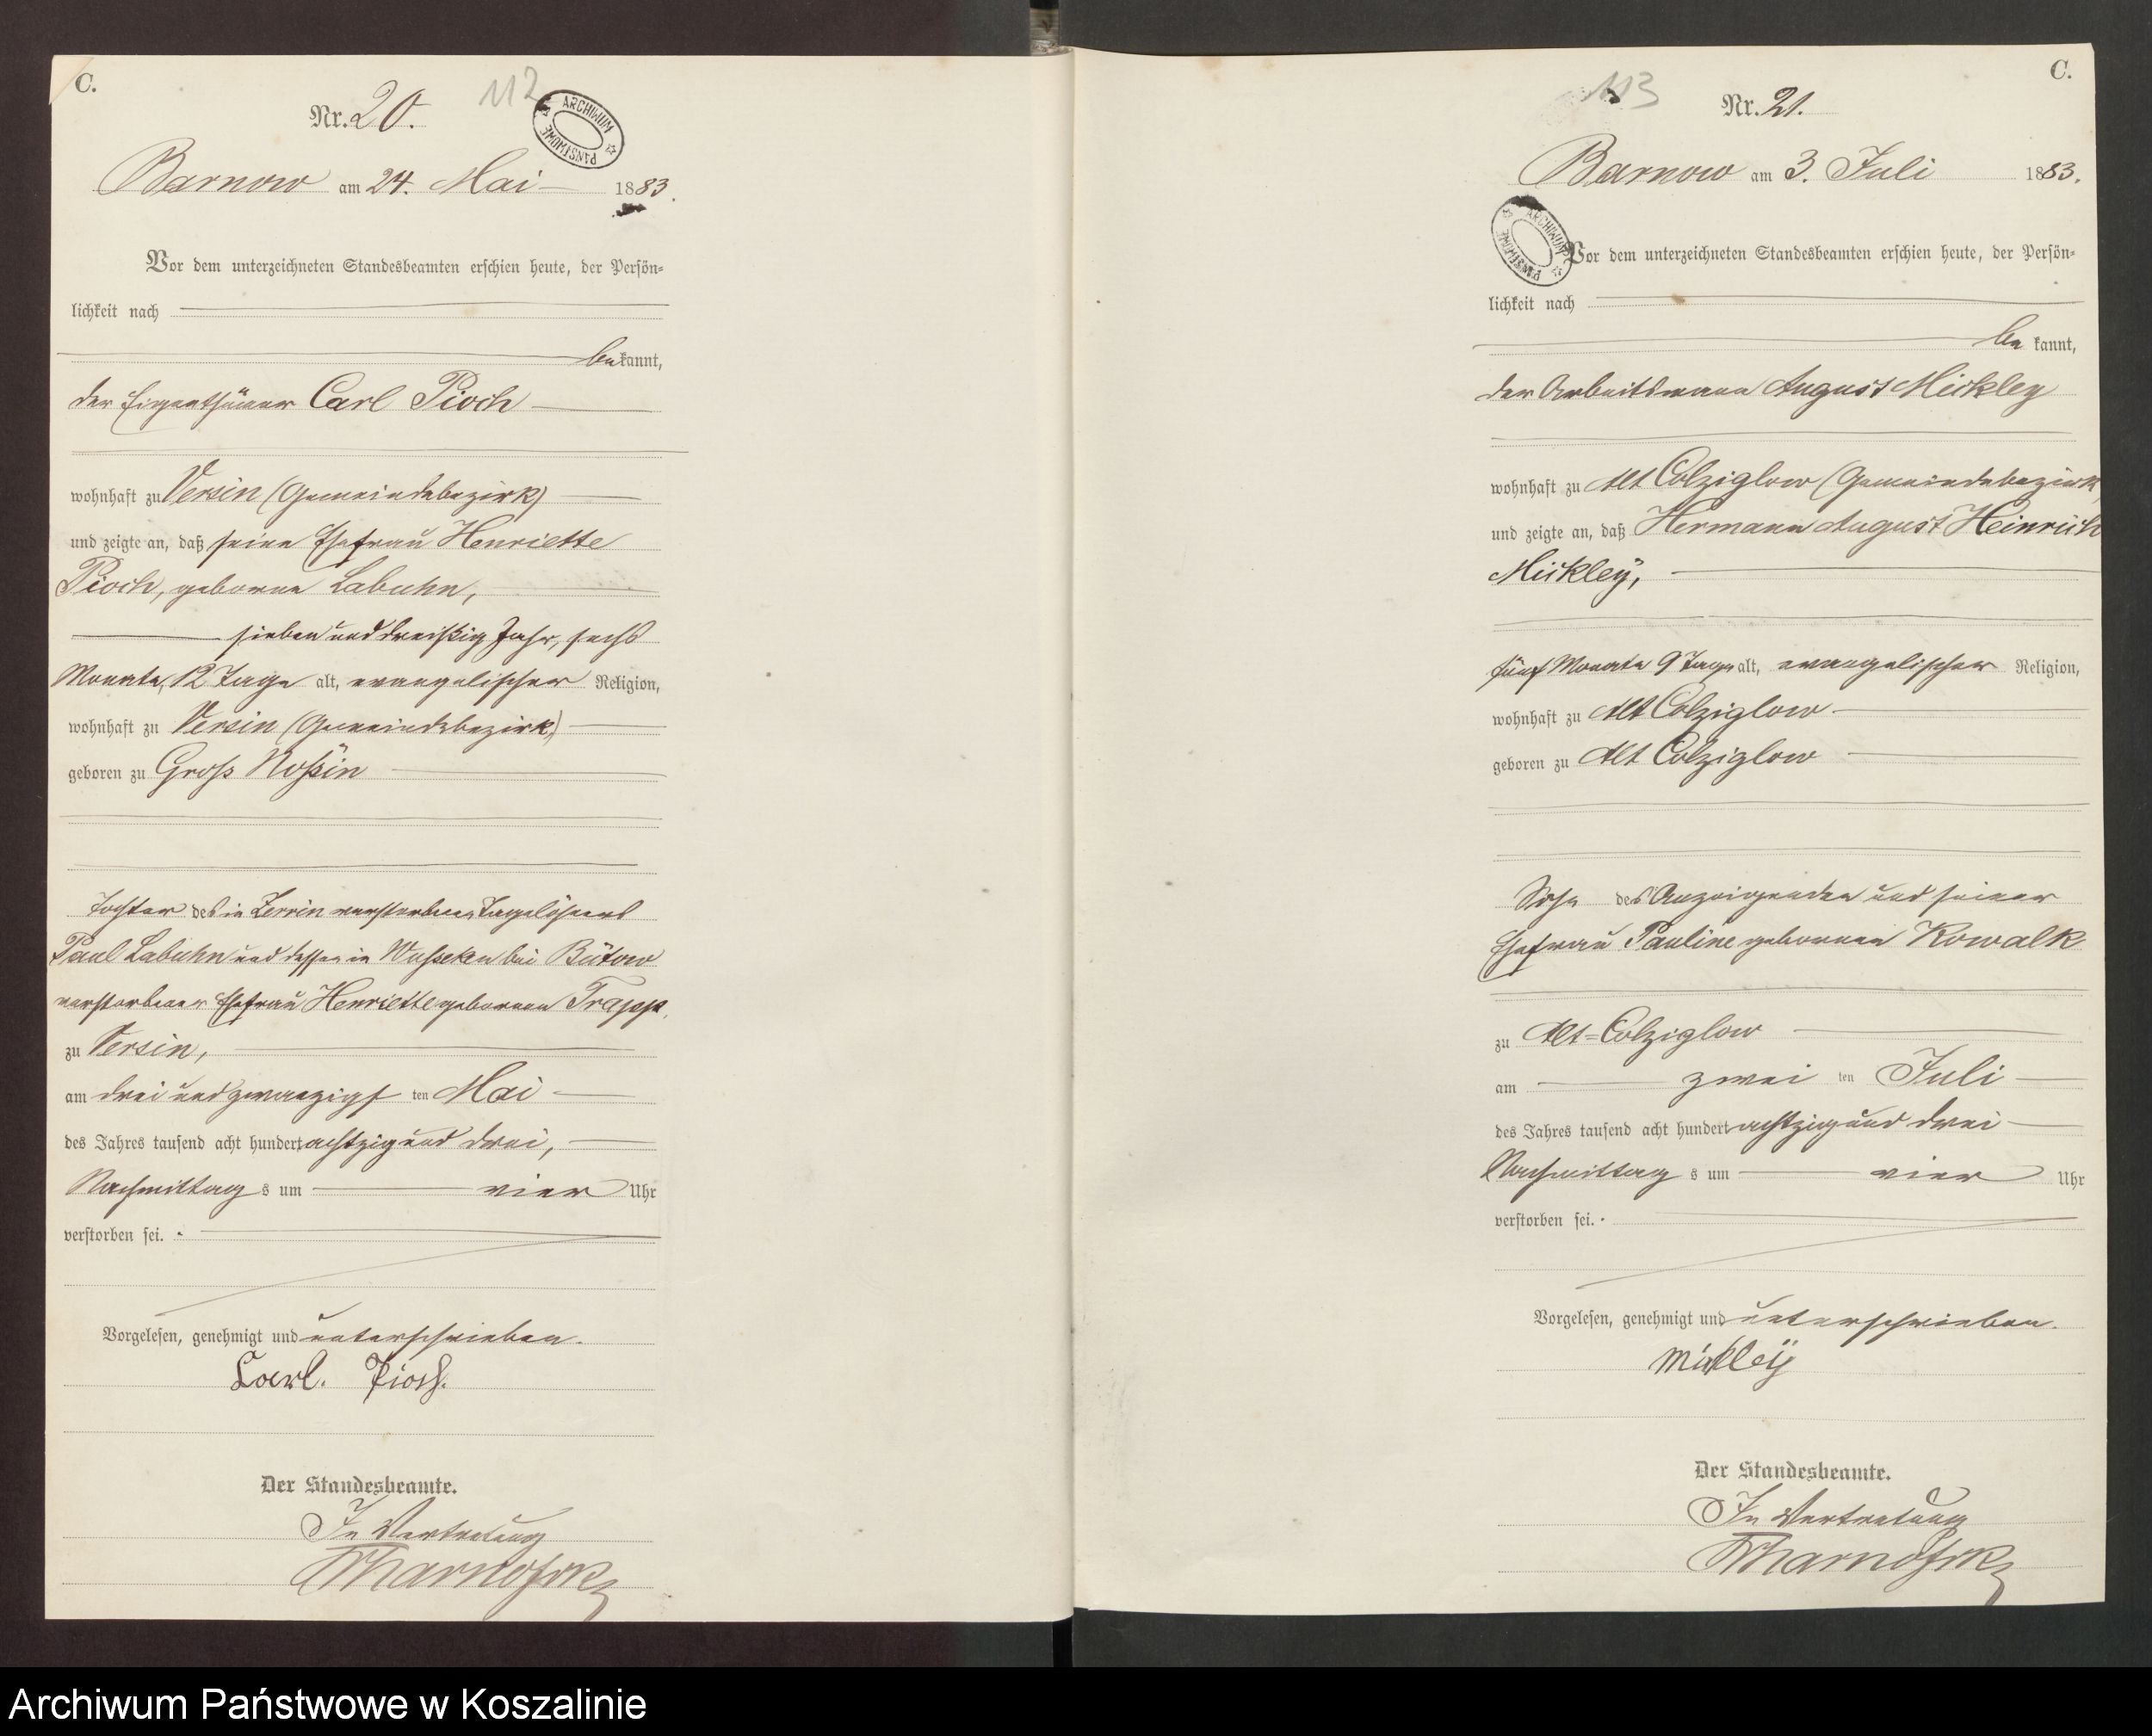 C.
Nr. 20.
112
ARCHIWUM PAŃSTWOWE
Barnow am 24. Mai 1883.
Vor dem unterzeichneten Standesbeamten erschien heute, der Persön-
lichkeit nach
bekannt,
der Eigenthümer Carl Pioch
wohnhaft zu Versin (Gemeindebezirk)
und zeigte an, daß seine Ehefrau Henriette
Pioch, geborne Labuhn,
sieben und dreißig Jahr, sechs
Monate, 12 Tage alt, evangelischer Religion,
wohnhaft zu Versin (Gemeindebezirk)
geboren zu Gross Nossin
Tochter des in Zerrin verstorbenen Tagelöhners
Paul Labuhn und dessen in Wusseken bei Bütow
verstorbener Ehefrau Henriette gebornen Trapp.
zu Versin,
am drei und zwanzigsten Mai
des Jahres tausend acht hundert achtzig und drei,
Nachmittags um vier Uhr
verstorben sei.
Vorgelesen, genehmigt und unterschrieben.
Carl. Pioch.
Der Standesbeamte.
In Vertretung
C.
113
Nr. 21.
Barnow am 3. Juli 1883.
ARCHIWUM PAŃSTWOWE
Vor dem unterzeichneten Standesbeamten erschien heute, der Persön-
lichkeit nach
be kannt,
der Arbeitsmann August Mickley
wohnhaft zu Alt Colziglow (Gemeindebezirk
und zeigte an, daß Hermann August Heinrich
Mickley,
fünf Monate 9 Tage alt, evangelischer Religion,
wohnhaft zu Alt Colziglow
geboren zu Alt Colziglow
Sohn des Anzeigenden und seiner
Ehefrau Pauline gebornen Kowalk
zu Alt-Colziglow
am zwei ten Juli
des Jahres tausend acht hundert achtzig und drei
Nachmittag s um vier Uhr
verstorben sei.
Vorgelesen, genehmigt und unterschrieben.
Mickley
Der Standesbeamte.
In Vertretung
Archiwum Państwowe w Koszalinie